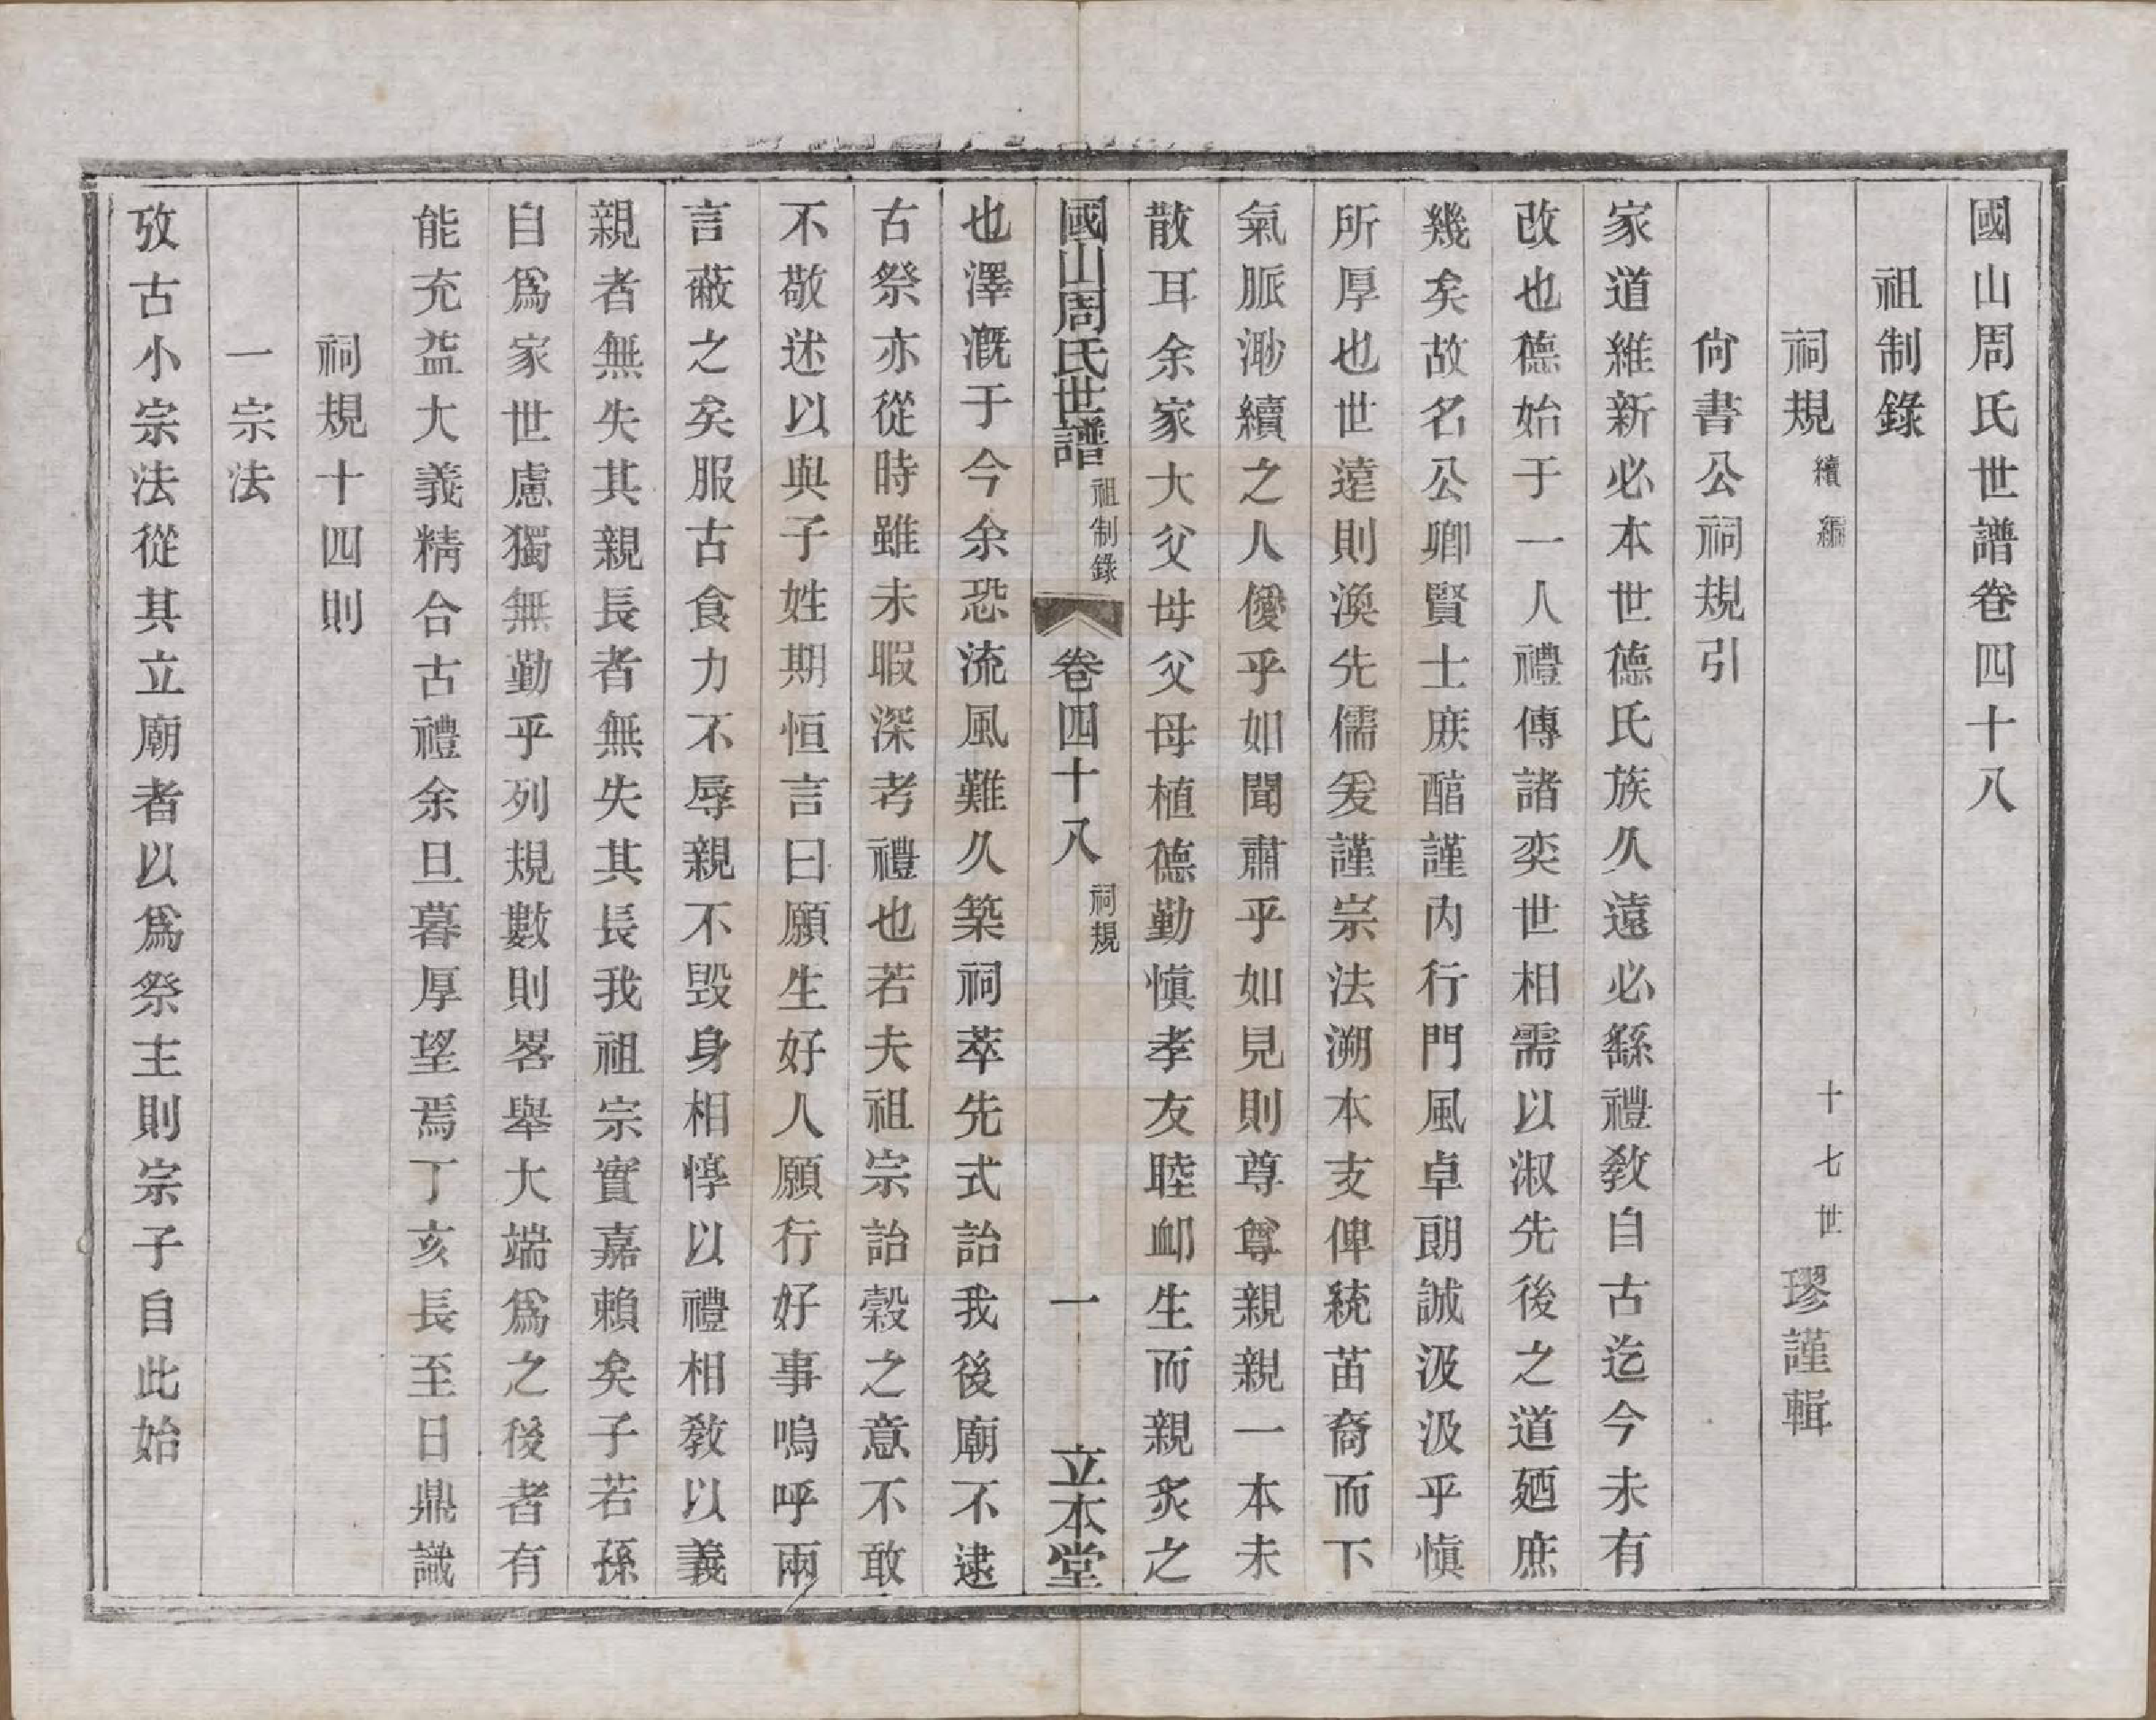 國山周氏世譜卷四十八
祖制錄
祠規續編　十七世璆謹輯
尙書公祠規引
家道維新必本世德氏族久遠必繇禮敎自古迄今未有
改也德始于一人禮傳諸奕世相需以淑先後之道廼庶
幾矣故名公卿賢士庻酳謹內行門風卓朗誠汲汲乎愼
所厚也世遠則渙先儒爰謹宗法溯本支俾統苗裔而下
氣脈渺續之人僾乎如聞肅乎如見則尊尊親親一本未
散耳余家大父母父母植德勤愼孝友睦卹生而親炙之
國山周氏世譜　祖制錄　卷四十八　祠規　一　立本堂
也澤漑于今余恐流風難久築祠萃先式詒我後廟不逮
古祭亦從時雖未暇深考禮也若夫祖宗詒穀之意不敢
不敬述以與子姓期恒言曰願生好人願行好事嗚呼兩
言蔽之矣服古食力不辱親不毀身相惇以禮相敎以義
親者無失其親長者無失其長我祖宗實嘉賴矣子若孫
自爲家世慮獨無勤乎列規數則畧舉大端爲之後者有
能充益大義精合古禮余旦暮厚望焉丁亥長至日鼎識
祠規十四則
一宗法
攷古小宗法從其立廟者以爲祭主則宗子自此始